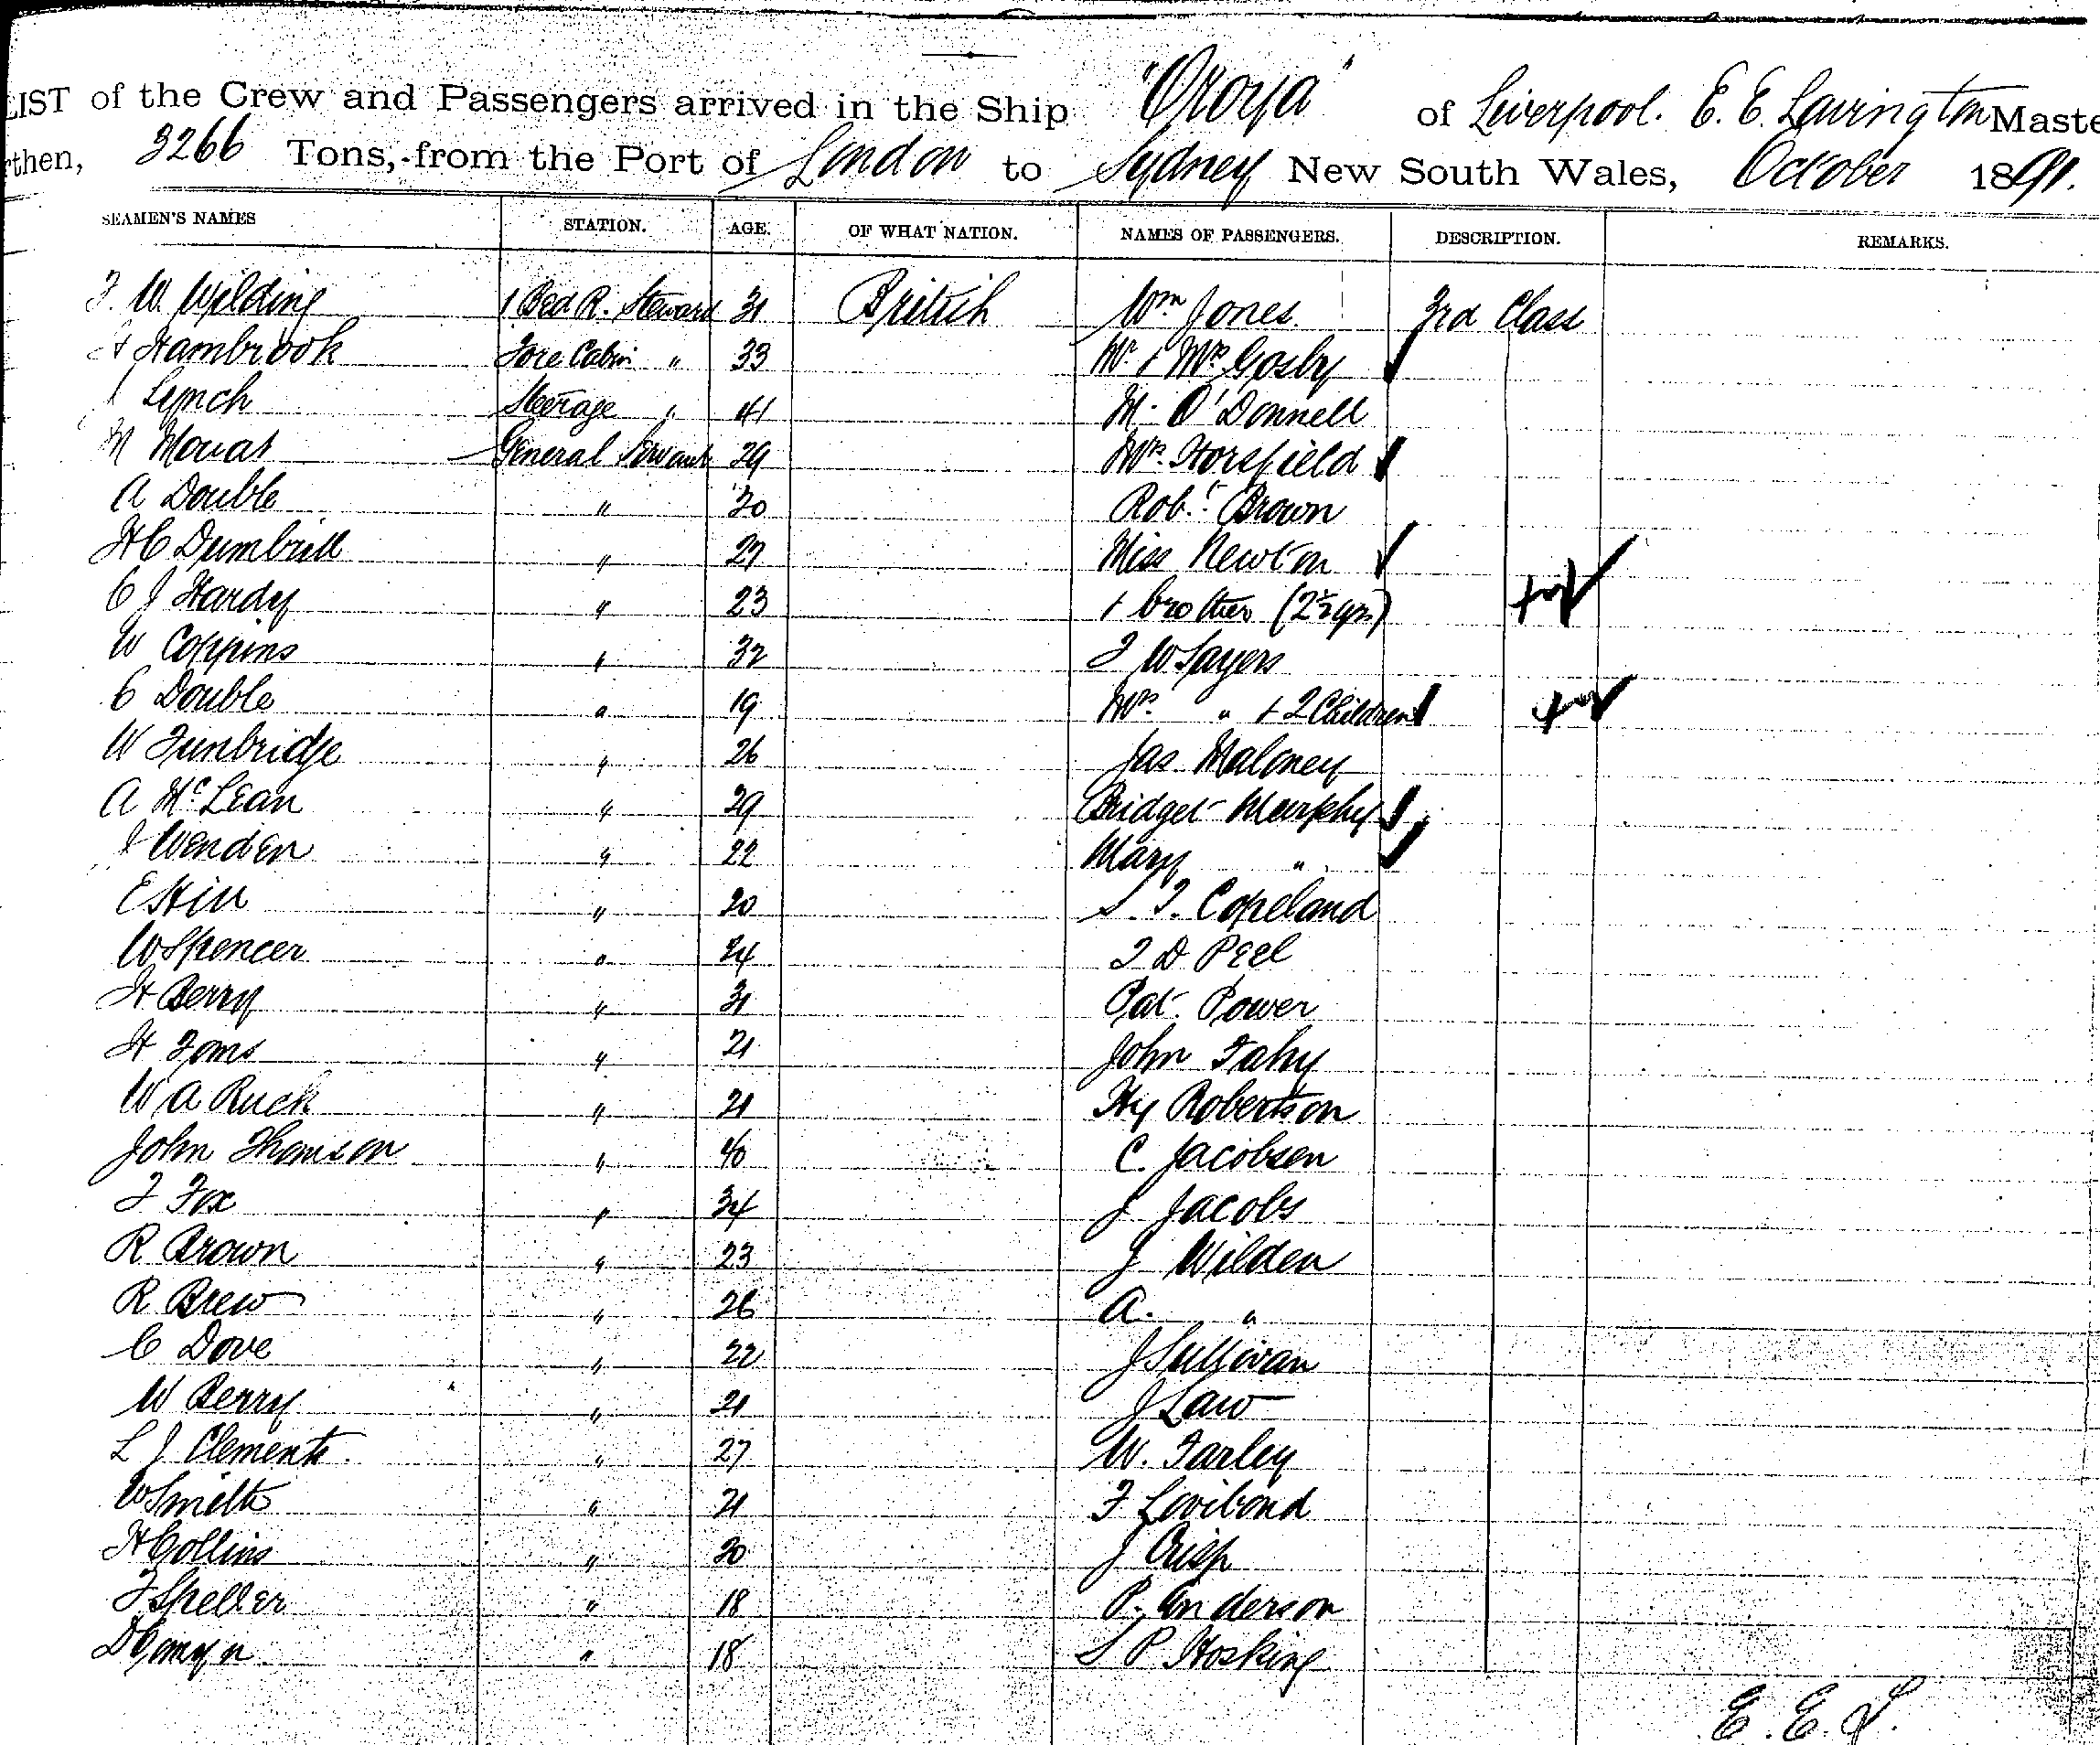 LIST of the Crew and Passengers arrived in the Ship "Oroya" of Liverpool. E. E. Lavington Maste
rthen, 3266 Tons, from the Port of London to Sydney New South Wales, October 1891.
SEAMEN'S NAMES STATION. AGE. OF WHAT NATION. NAMES OF PASSENGERS. DESCRIPTION. REMARKS.
F. W. Wilding 1 Bed R. Steward 31 British Wm Jones 3rd Class
Hambrook Fore Cabin " 33 Mr & Mrs Gosby
Lynch Steerage " 41 M. O'Donnell
M Mouat General Servant 29 Mrs Horsfield
A Double " 20 Robt. Brown
H C Dumbrill " 27 Miss Newton
C J Hardy " 23 + brother (2½ yrs)
W Coppins " 32 F W Sayers
C Double " 19 Mrs " + 2 Children
W Tunbridge " 26 Jas Maloney
A McLean " 29 Bridget Murphy
J Wenden " 22 Mary "
E Hill " 20 S. T. Copeland
W Spencer " 24 T D Peel
H Berry " 31 Pat Power
H Toms " 21 John Fahy
W A Ruck " 21 Hy Robertson
John Thomson " 40 C. Jacobsen
T Fox " 34 J Jacobs
R Brown " 23 J Wilden
R Brew " 26 A. "
C Dove " 22 J Sullivan
W Berry " 21 J Law
L J Clements " 27 W. Farley
W Smith " 21 F Lovibond
H Collins " 20 J Crisp
F Speller " 18 P. Anderson
D " 18 S P Hosking
E. E. L.